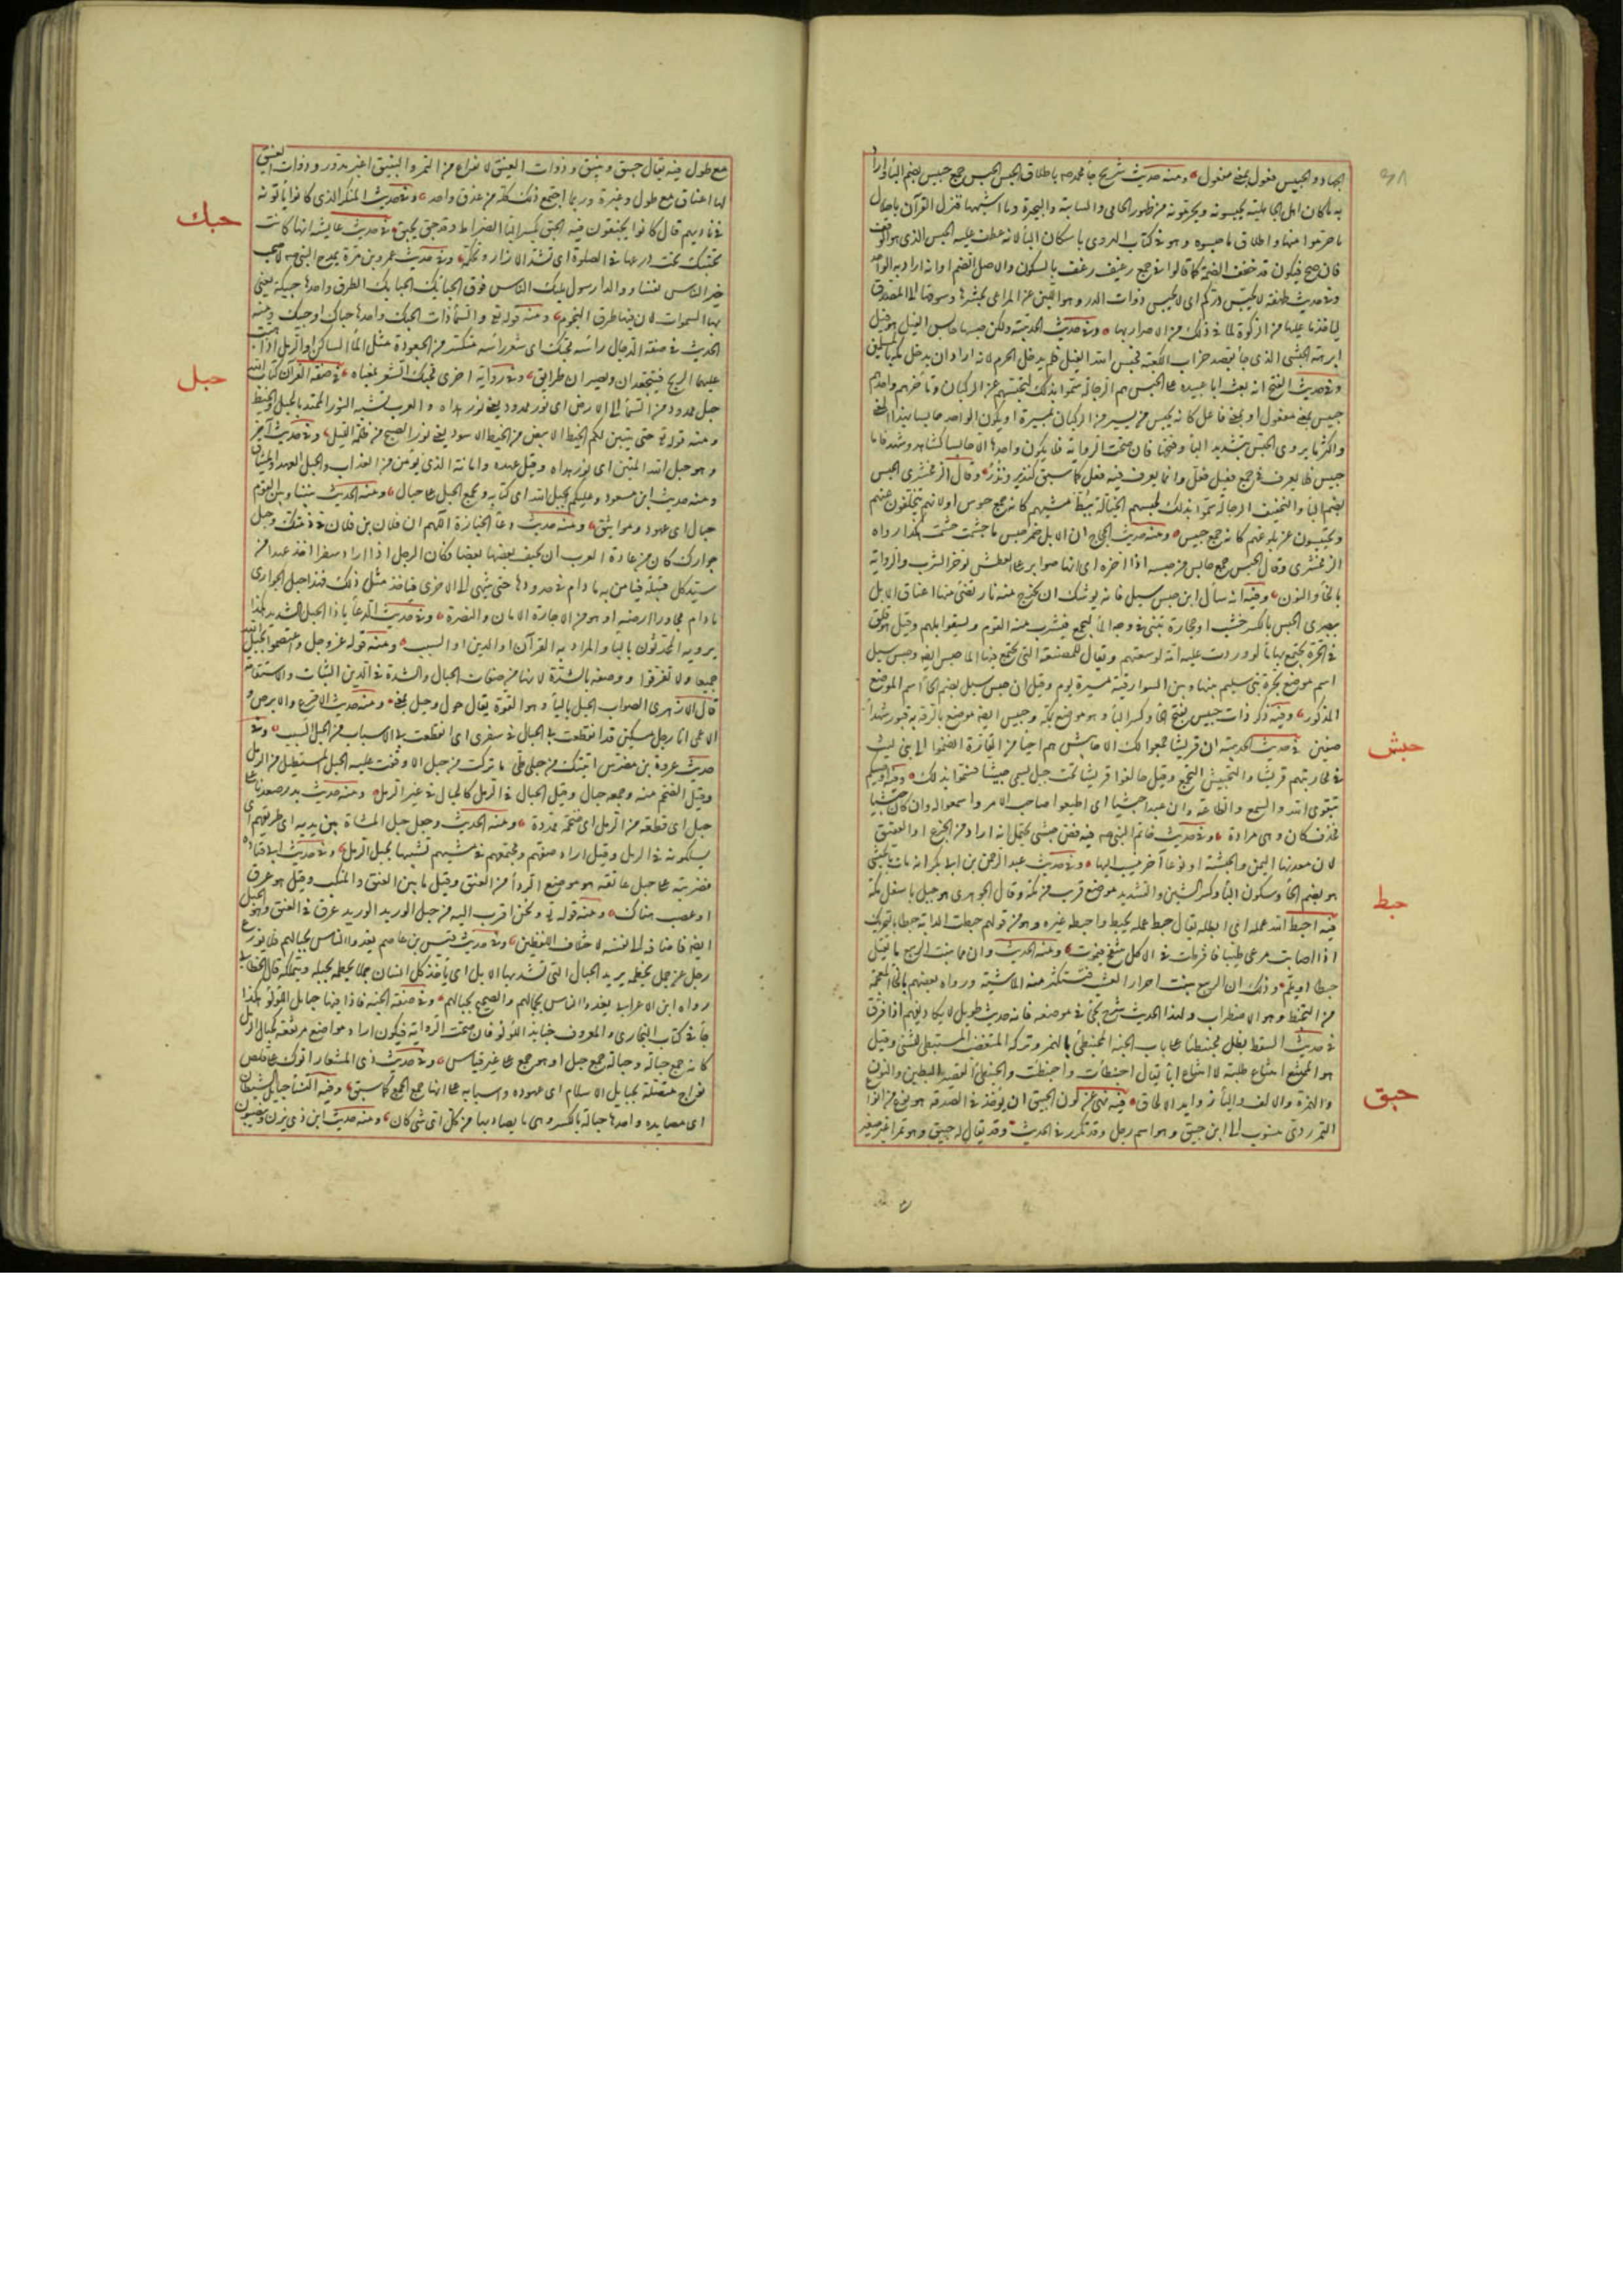 الجهاد والحبيس فعول بمعنى مفعول ومنه حديث شريح جا محمد صم باطلاق الحبس الحبس جمع حبيس بضم البا واراد
به ما كان اهل الجاهلية يحبسونه ويحرمونه من ظهور الحامي والسايبة والبحيرة وما اشبهها فنزل القرآن باحلال
ما حرموا منها واطلاق ما حبسوه وهو في كتاب الهروي باسكان البا لانه عطف عليه الحبس الذي هو الوقف
فان صح فيكون قد خفف الضمة كما قالوا في جمع رغيف رغف بالسكون والاصل الضم او انه اراد به الواحد
وفي حديث طهفة لا يحبس دركم اي لا يحبس ذوات الدر وهو اللبن عن المرعى بحشرها وسوقها الى المصدق
لياخذ ما عليها من الزكوة لما في ذلك من الاضرار بها وفي حديث الحديبية ولكن حبسها حابس الفيل هو فيل
ابرهة الحبشي الذي جا يقصد خراب الكعبة فحبس الله الفيل فلم يدخل الحرم لانه اراد ان يدخل مكة بالمسلمين
وفي حديث الفتح انه بعث ابا عبيدة على الحبس هم الرجالة سموا بذلك لتحبسهم عن الركبان وتاخرهم واحدهم
حبيس بمعنى مفعول او بمعنى فاعل كانه يحبس من يسير من الركبان بمسيره او يكون الواحد حابسا بهذا المعنى
واكثر ما يروى الحبس بتشديد البا وفتحها فان صحت الرواية فلا يكون واحدها الا حابسا كشاهد وشهد فاما
حبيس فلا يعرف في جمع فعيل فعل وانما يعرف فيه فعل كما سبق كنذير ونذر وقال الزمخشري الحبس
بضم البا والتخفيف الرجالة سموا بذلك لحبسهم الخيالة ببط مشيهم كانه جمع حبوس او لانهم يتخلفون عنهم
ويحتبسون عن بلوغهم كانه جمع حبيس ومنه حديث الحجاج ان الابل ضمر حبس ما جشمت جشمت هكذا رواه
الزمخشري وقال الحبس جمع حابس من حبسه اذا اخره اي انها صوابر على العطش توخر الشرب والرواية
بالخا والنون وفيه انه سال اين حبس سيل فانه يوشك ان تخرج منه نار تضئ منها اعناق الابل
ببصرى الحبس بالكسر خشب او حجارة تبنى في وجه الما ليجتمع فيشرب منه القوم ويسقوا ابلهم وقيل هو فلوق
في الحرة يجتمع بها ما لو وردت عليه امة لوسعتهم ويقال للمصنعة التي يجتمع فيها الما حبس ايضا وحبس سيل
اسم موضع بحرة بني سليم بينها وبين السوارقية مسيرة يوم وقيل ان حبس سيل بضم الحا اسم الموضع
المذكور وفيه ذكر ذات حبيس بفتح الحا وكسر البا وهو موضع بمكة وحبيس ايضا موضع بالرقة به قبور شهدا
صفين في حديث الحديبية ان قريشا جمعوا لك الاحابش هم احيا من القارة انضموا الى بني ليث
في محاربتهم قريشا والتحبش التجمع وقيل حالفوا قريشا تحت جبل يسمى حبشيا فسموا بذلك وفيه اوصيكم
بتقوى الله والسمع والطاعة وان عبدا حبشيا اي اطيعوا صاحب الامر واسمعوا له وان كان حبشيا
فحذف كان وهي مرادة وفي حديث خاتم النبي صم فيه فص حبشي يحتمل انه اراد من الجزع او العقيق
لان معدنهما اليمن والحبشة او نوعا آخر ينسب اليها وفي حديث عبد الرحمن بن ابي بكر انه مات بالحبشي
هو بضم الحا وسكون البا وكسر الشين والتشديد موضع قريب من مكة وقال الجوهري هو جبل باسفل مكة
فيه احبط الله عمله اي ابطله يقال حبط عمله يحبط واحبطه غيره وهو من قولهم حبطت الدابة حبطا بالتحريك
اذا اصابت مرعى طيبا فافرطت في الاكل حتى تنتفخ فتموت ومنه الحديث وان مما ينبت الربيع ما يقتل
حبطا او يلم وذلك ان الربيع ينبت احرار العشب فتستكثر منه الماشية ورواه بعضهم بالخا المعجمة
من التخبط وهو الاضطراب ولهذا الحديث شرح يجئ في موضعه فانه حديث طويل لا يكاد يفهم اذا فرق
في حديث السقط يظل محبنطئا على باب الجنة المحبنطئ بالهمز وتركه المتغضب المستبطئ للشئ وقيل
هو الممتنع امتناع طلبة لا امتناع ابا يقال احبنطات واحبنطيت والحبنطى القصير البطين والنون
والهمزة والالف واليا زوايد للالحاق فيه نهى عن لون الحبيق ان يوخذ في الصدقة هو نوع من انواع
التمر ردئ منسوب الى ابن حبيق وهو اسم رجل وقد تكرر في الحديث وقد يقال له حبيق وهو تمر اغبر صغير
حبش
حبط
حبق
مع طول فيه يقال حبيق ونبيق وذوات العنيق لانواع من التمر والنبيق اغبر مدور وذوات العنيق
لها اعناق مع طول وغبرة وربما اجتمع ذلك كله من عذق واحد وفي حديث المنكر الذي كانوا ياتونه
في ناديهم قال كانوا يحبقون فيه الحبق بكسر البا الضراط وقد حبق يحبق في حديث عايشة انها كانت
تحتبك تحت درعها في الصلوة اي تشد الازار وتحكمه وفي حديث عمرو بن مرة يمدح النبي صم لاصبحت
خير الناس نفسا ووالدا رسول مليك الناس فوق الحبايك الحبايك الطرق واحدها حبيكة يعني
بها السموات لان فيها طرق النجوم ومنه قوله تع والسما ذات الحبك واحدها حباك او حبيك ومنه
الحديث في صفة الدجال راسه حبك اي شعر راسه متكسر من الجعودة مثل الما الساكن او الرمل اذا هبت
عليهما الريح فيتجعدان ويصيران طرايق وفي رواية اخرى محبك الشعر بمعناه في صفة القرآن كتاب الله
حبل ممدود من السما الى الارض اي نور ممدود يعني نور هداه والعرب تشبه النور الممتد بالحبل والخيط
ومنه قوله تع حتى يتبين لكم الخيط الابيض من الخيط الاسود يعني نور الصبح من ظلمة الليل وفي حديث آخر
وهو حبل الله المتين اي نور هداه وقيل عهده وامانه الذي يؤمن من العذاب والحبل العهد والميثاق
ومنه حديث ابن مسعود وعليكم بحبل الله اي كتابه ويجمع الحبل على حبال ومنه الحديث بيننا وبين القوم
حبال اي عهود ومواثيق ومنه حديث دعا الجنازة اللهم ان فلان بن فلان في ذمتك وحبل
جوارك كان من عادة العرب ان يخيف بعضها بعضا فكان الرجل اذا اراد سفرا اخذ عهدا من
سيد كل قبيلة فيامن به ما دام في حدودها حتى ينتهي الى الاخرى فياخذ مثل ذلك فهذا حبل الجوار اي
ما دام مجاورا ارضه او هو من الاجارة الامان والنصرة وفي حديث الدعا يا ذا الحبل الشديد هكذا
يرويه المحدثون بالبا والمراد به القرآن او الدين او السبب ومنه قوله عز وجل واعتصموا بحبل الله
جميعا ولا تفرقوا ووصفه بالشدة لانها من صفات الحبال والشدة في الدين الثبات والاستقامة
قال الازهري الصواب الحيل باليا وهو القوة يقال حول وحيل بمعنى ومنه حديث الاقرع والابرص و
الاعمى انا رجل مسكين قد انقطعت بي الحبال في سفري اي انقطعت بي الاسباب من الحبل السبب وفي
حديث عروة بن مضرس اتيتك من جبلي طي ما تركت من حبل الا وقفت عليه الحبل المستطيل من الرمل
وقيل الضخم منه وجمعه حبال وقيل الحبال في الرمل كالجبال في غير الرمل ومنه حديث بدر صعدنا على
حبل اي قطعة من الرمل اي ضخمة ممتدة ومنه الحديث وجعل حبل المشاة بين يديه اي طريقهم الذي
يسلكونه في الرمل وقيل اراد صفهم ومجتمعهم في مشيهم تشبيها بحبل الرمل وفي حديث ابي قتادة
فضربته على حبل عاتقه هو موضع الردا من العنق وقيل ما بين العنق والمنكب وقيل هو عرق
او عصب هناك ومنه قوله تع ونحن اقرب اليه من حبل الوريد الوريد عرق في العنق وهو الحبل
ايضا فاضافه الى نفسه لاختلاف اللفظين وفي حديث قيس بن عاصم يغدو الناس بحبالهم فلا يوزع
رجل عن جمل يخطمه يريد الحبال التي تشد بها الابل اي ياخذ كل انسان جملا يخطمه بحبله ويتملكه قال الخطابي
رواه ابن الاعرابي يغدو الناس بجمالهم والصحيح بحبالهم وفي صفة الجنة فاذا فيها حبايل اللؤلؤ هكذا
جا في كتاب البخاري والمعروف جنابذ اللؤلؤ فان صحت الرواية فيكون اراد مواضع مرتفعة كحبال الرمل
كانه جمع حبالة وحبالة جمع حبل او هو جمع على غير قياس وفي حديث ذي المشعار اتوك على قلص
نواج متصلة بحبايل الاسلام اي عهوده واسبابه على انها جمع الجمع كما سبق وفيه النسا حبايل الشيطان
اي مصايده واحدها حبالة بالكسر وهي ما يصاد بها من كل اي شي كان ومنه حديث ابن ذي يزن وينصبون
حبك
حبل